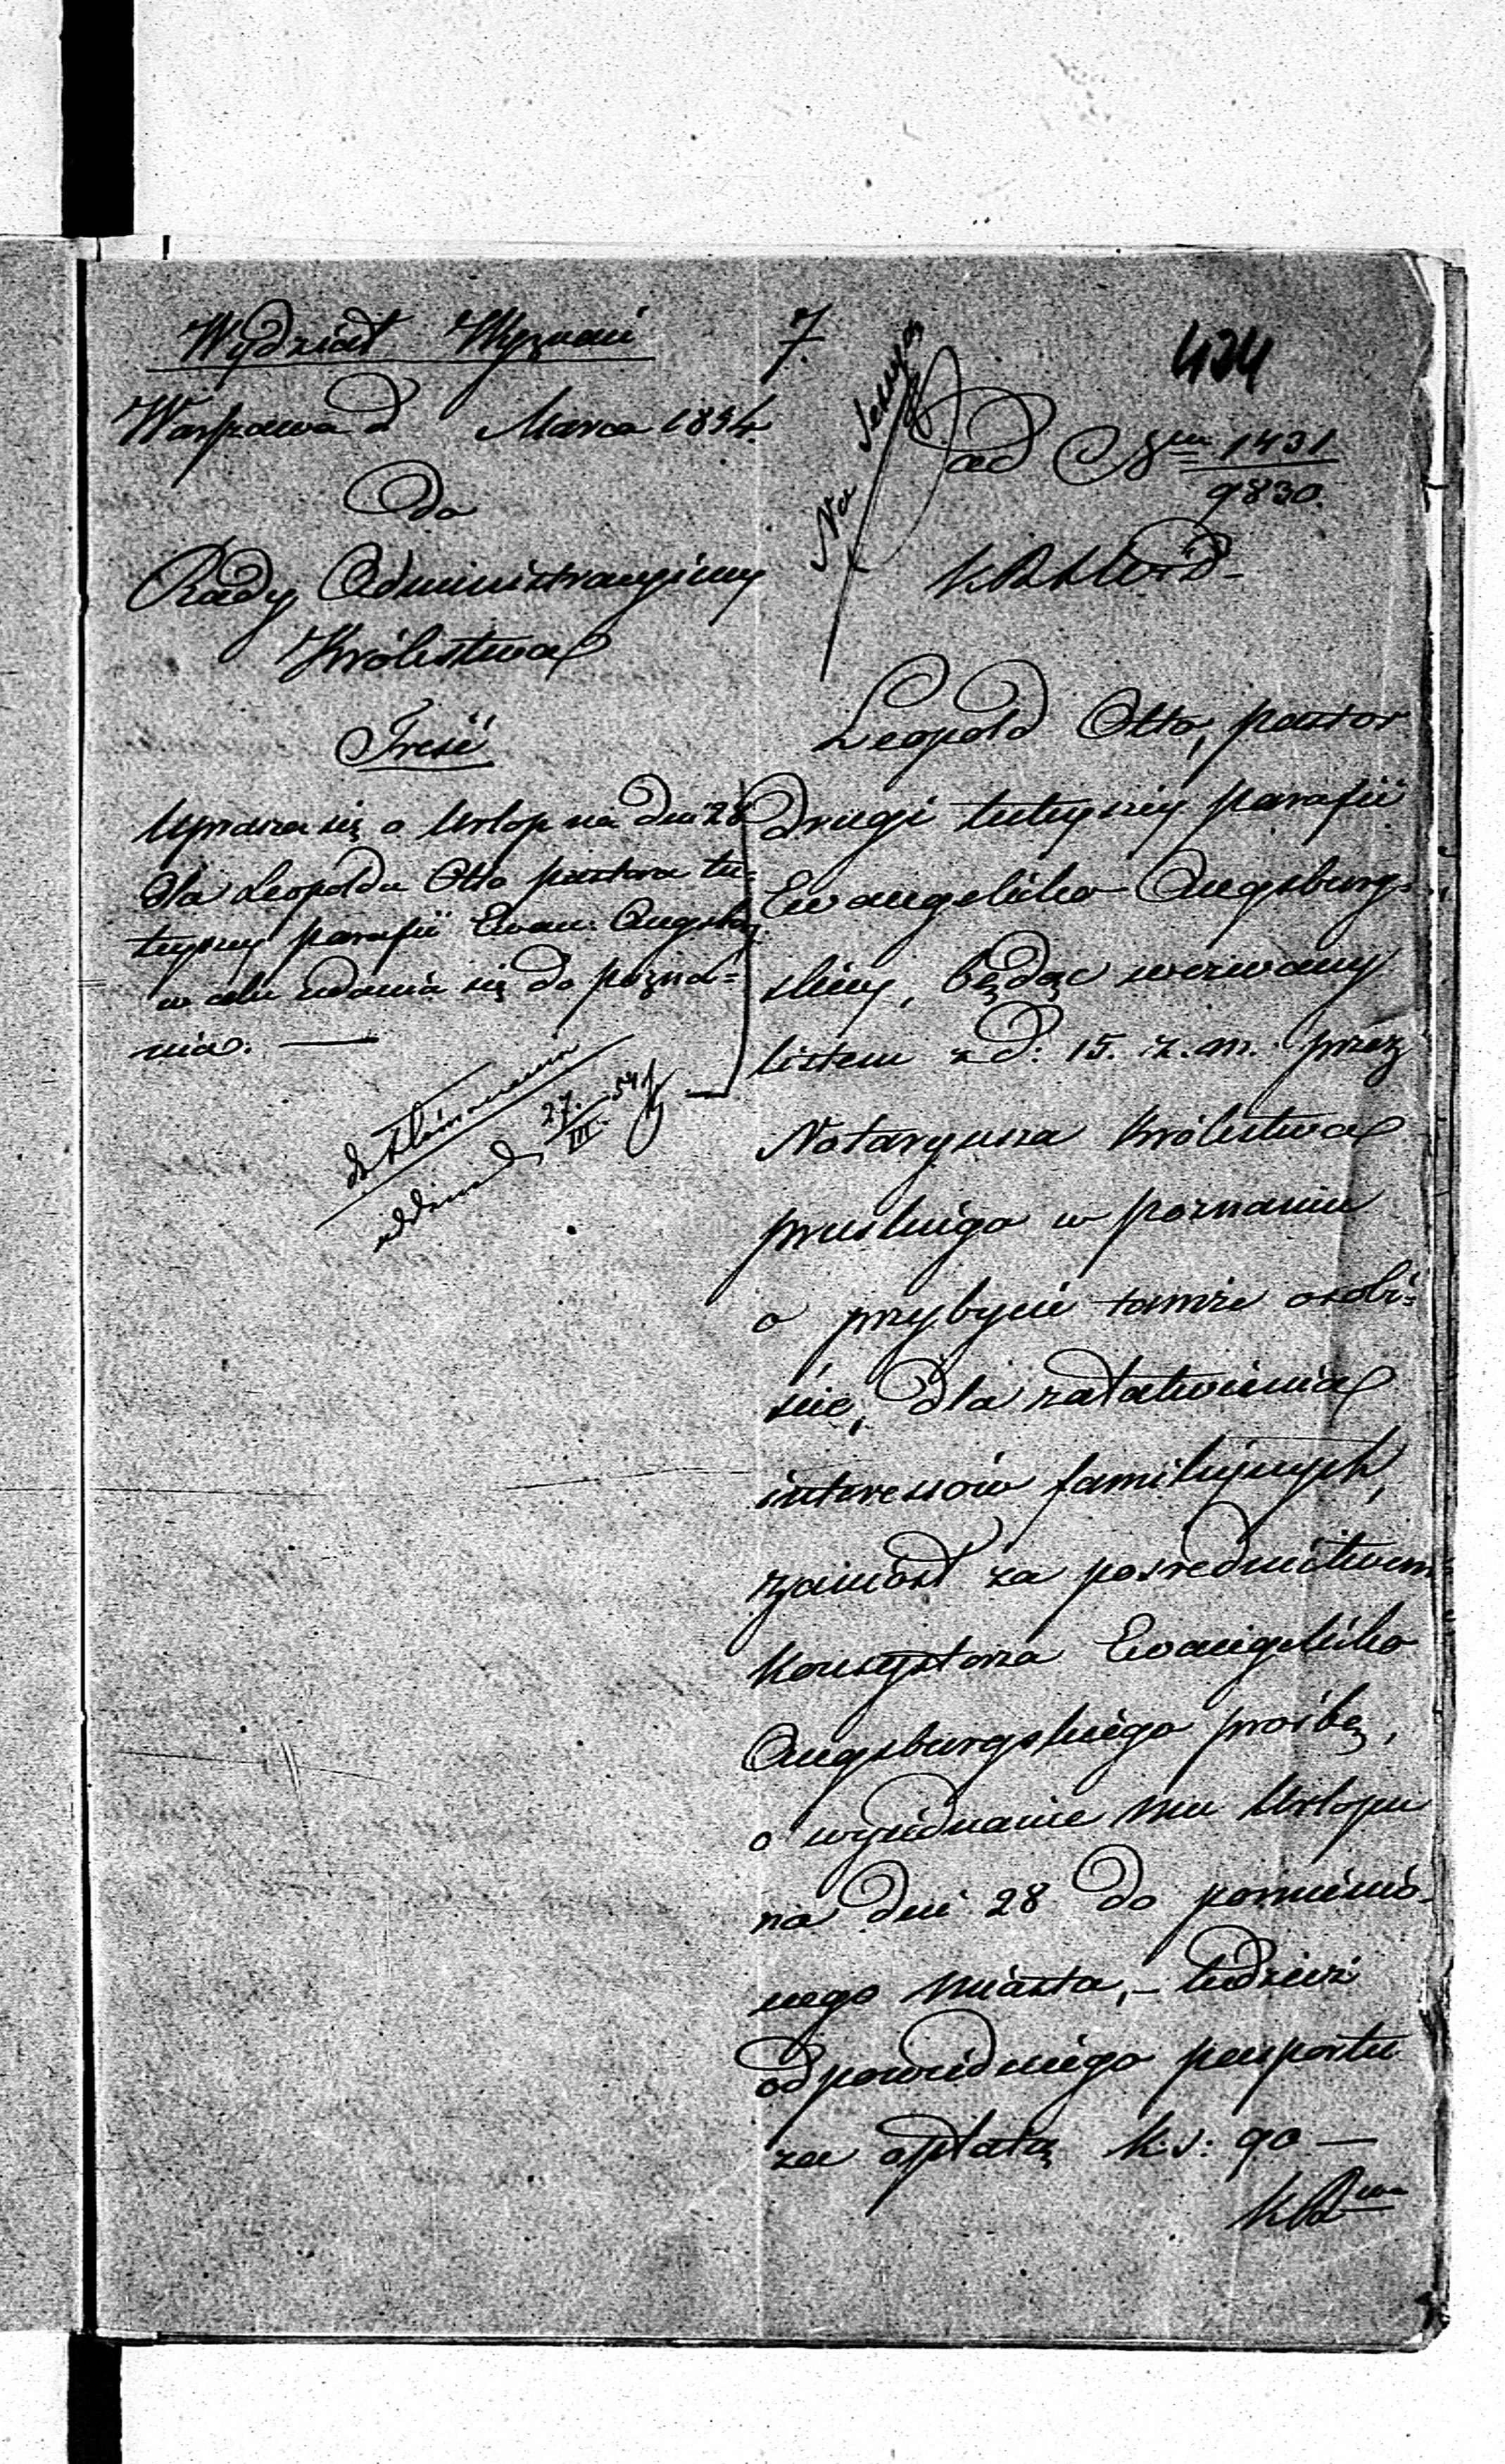 Wydział Wyznań
7.
434
Warszawa d Marca 1854.
Na Sessyą
ad Nrum 1431
9830.
Do
Rady Administracyjnej
Królestwa
Treść
Uprasza się o Urlop na dni 28
dla Leopolda Otto pastora tu=
tejszej parafii Ewan: Augsb:
w celu udania się do Pozna=
nia. —
27. 54
III.
Leopold Otto, pastor
drugi tutejszej parafii
Ewangelicko Augsburg=
skiej, będąc wezwany
listem z d: 15. z. m. przez
Notaryusza Królestwa
pruskiego w Poznaniu
o przybycie tamże osobi=
ście, dla załatwienia
interessów familijnych,
zaniósł za pośrednictwem
Konsystorza Ewangelicko
Augsburgskiego prośbę,
o wyjednanie mu Urlopu
na dni 28 do pomienio=
nego miasta, – tudzież
odpowiedniego pasportu
za opłatą k. s: 90 —